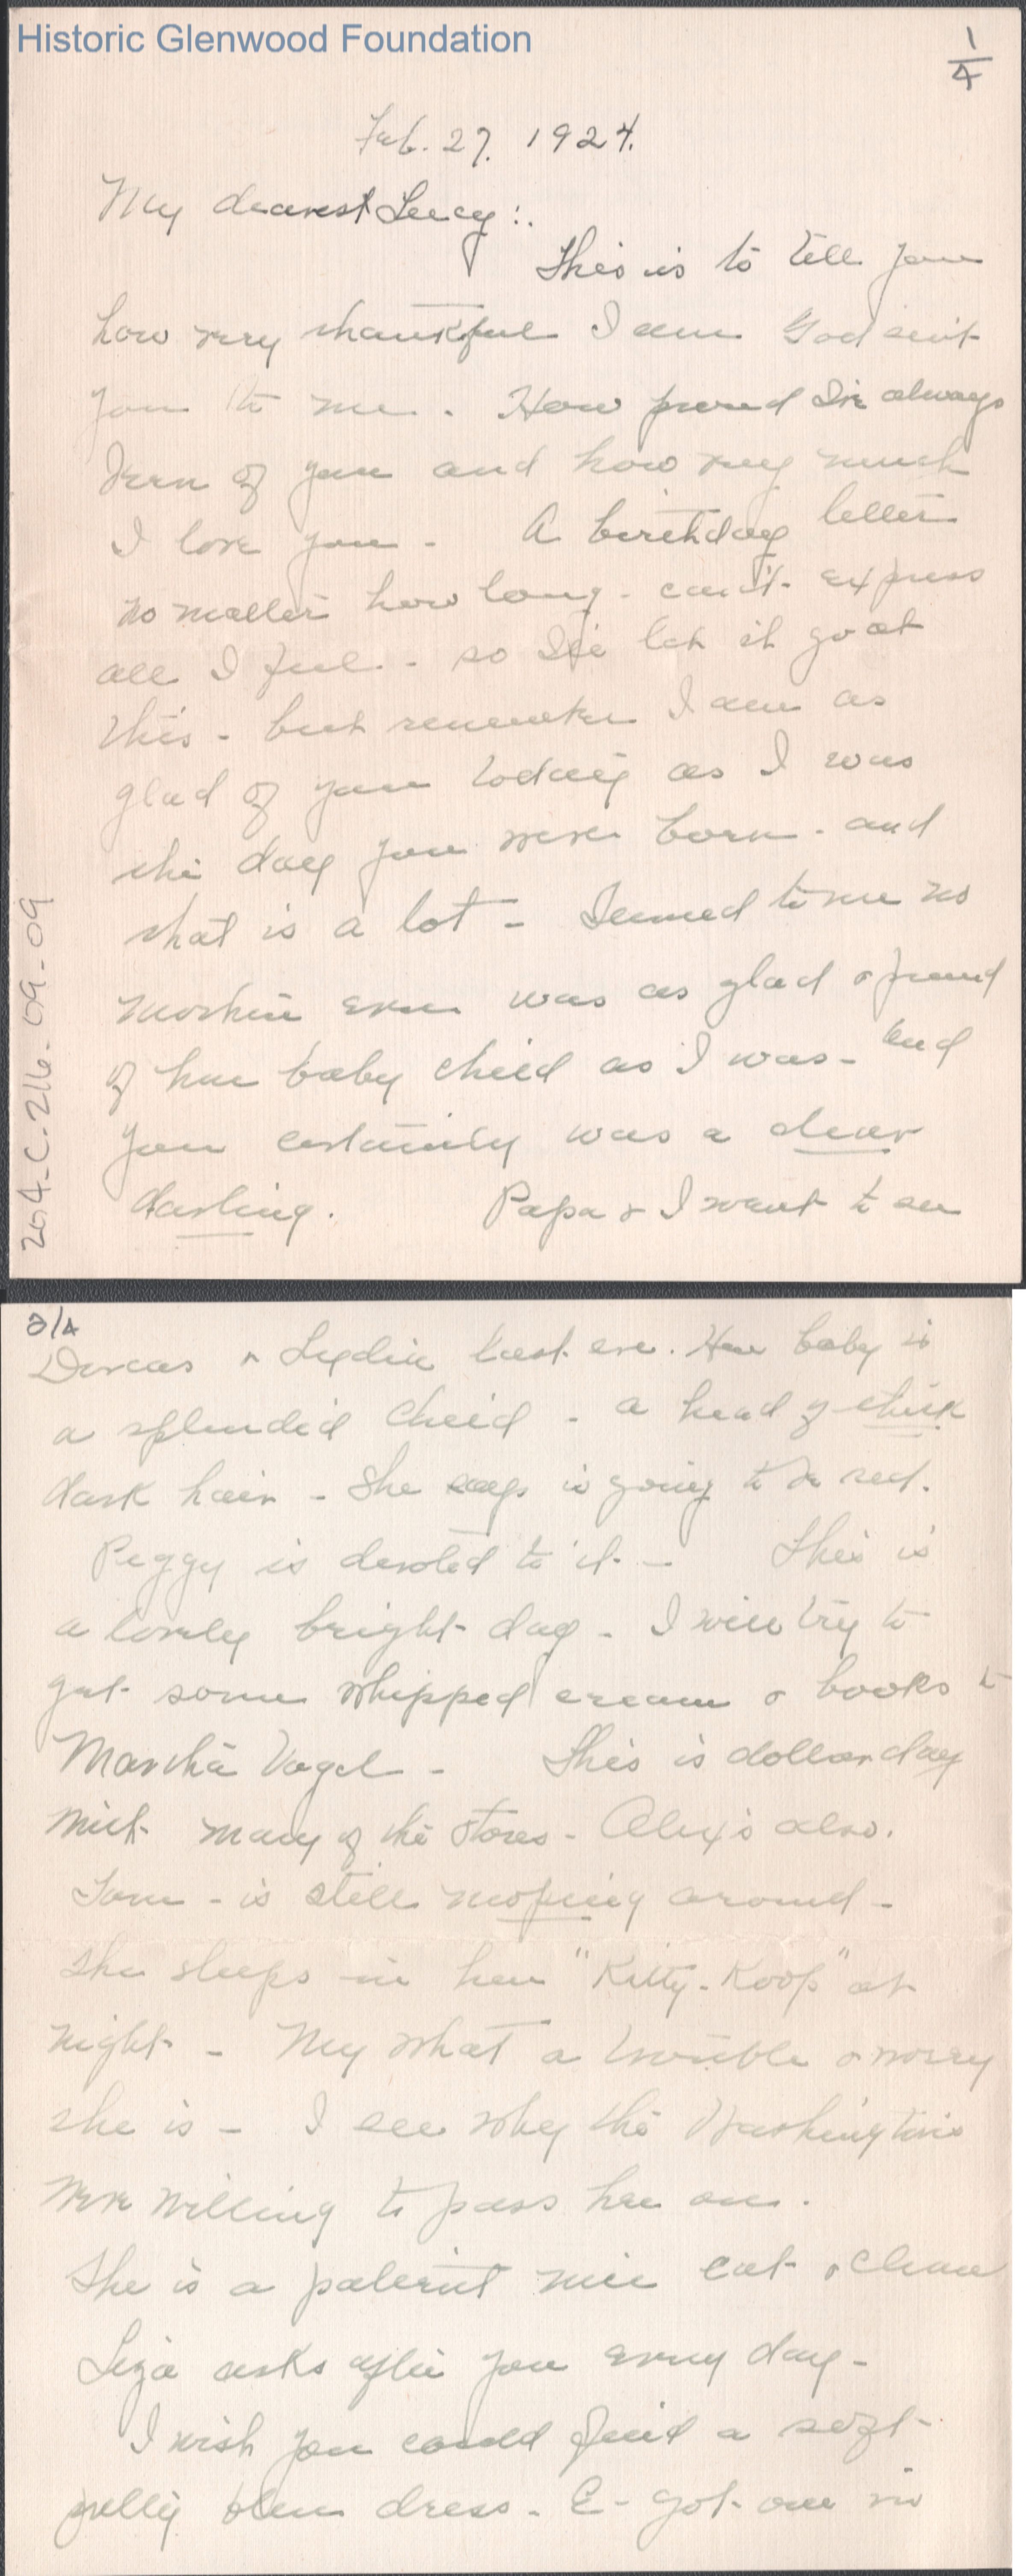 Historic Glenwood Foundation
1/4
Feb. 27. 1924.
My dearest Lucy:.
This is to tell you
how very thankful I am God sent
you to me. How proud I've always
been of you and how very much
I love you - A birthday letter
no matter how long - can't express
all I feel - so I'll let it go at
this - but remember I am as
glad of you today as I was
the day you were born - and
that is a lot - Seemed to me no
mother ever was as glad & proud
of her baby child as I was - and
you certainly was a dear
darling. Papa & I went to see
204-C-216-09-09
2/4
Dorcas & Lydia last eve. Her baby is
a splendid child - a head of thick
dark hair - She says is going to be red.
Peggy is devoted to it - This is
a lovely bright day - I will try to
get some whipped cream & books to
Martha Vogel - This is dollar day
with many of the stores - Alex's also.
Tom - is still moping around -
she sleeps in her "Kitty-Koop" at
night - My what a trouble & worry
she is - I see why the Washingtons
were willing to pass her on.
She is a patient nice cat & clean
Liza asks after you every day -
I wish you could find a soft -
pretty blue dress - E - got one in